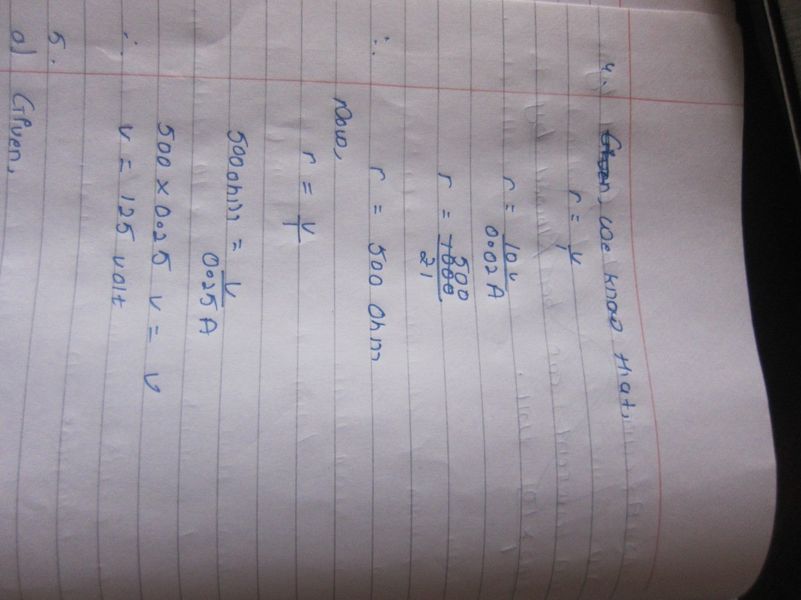 4. we know that,
r = V/I
r = 10 V/0.02 A
r = 1000/2 500 1
∴ r = 500 Ohm
Now,
r = V/I
500 ohm = V/0.25 A
500 × 0.25 V = V
∴ V = 125 volt
5.
a) Given,